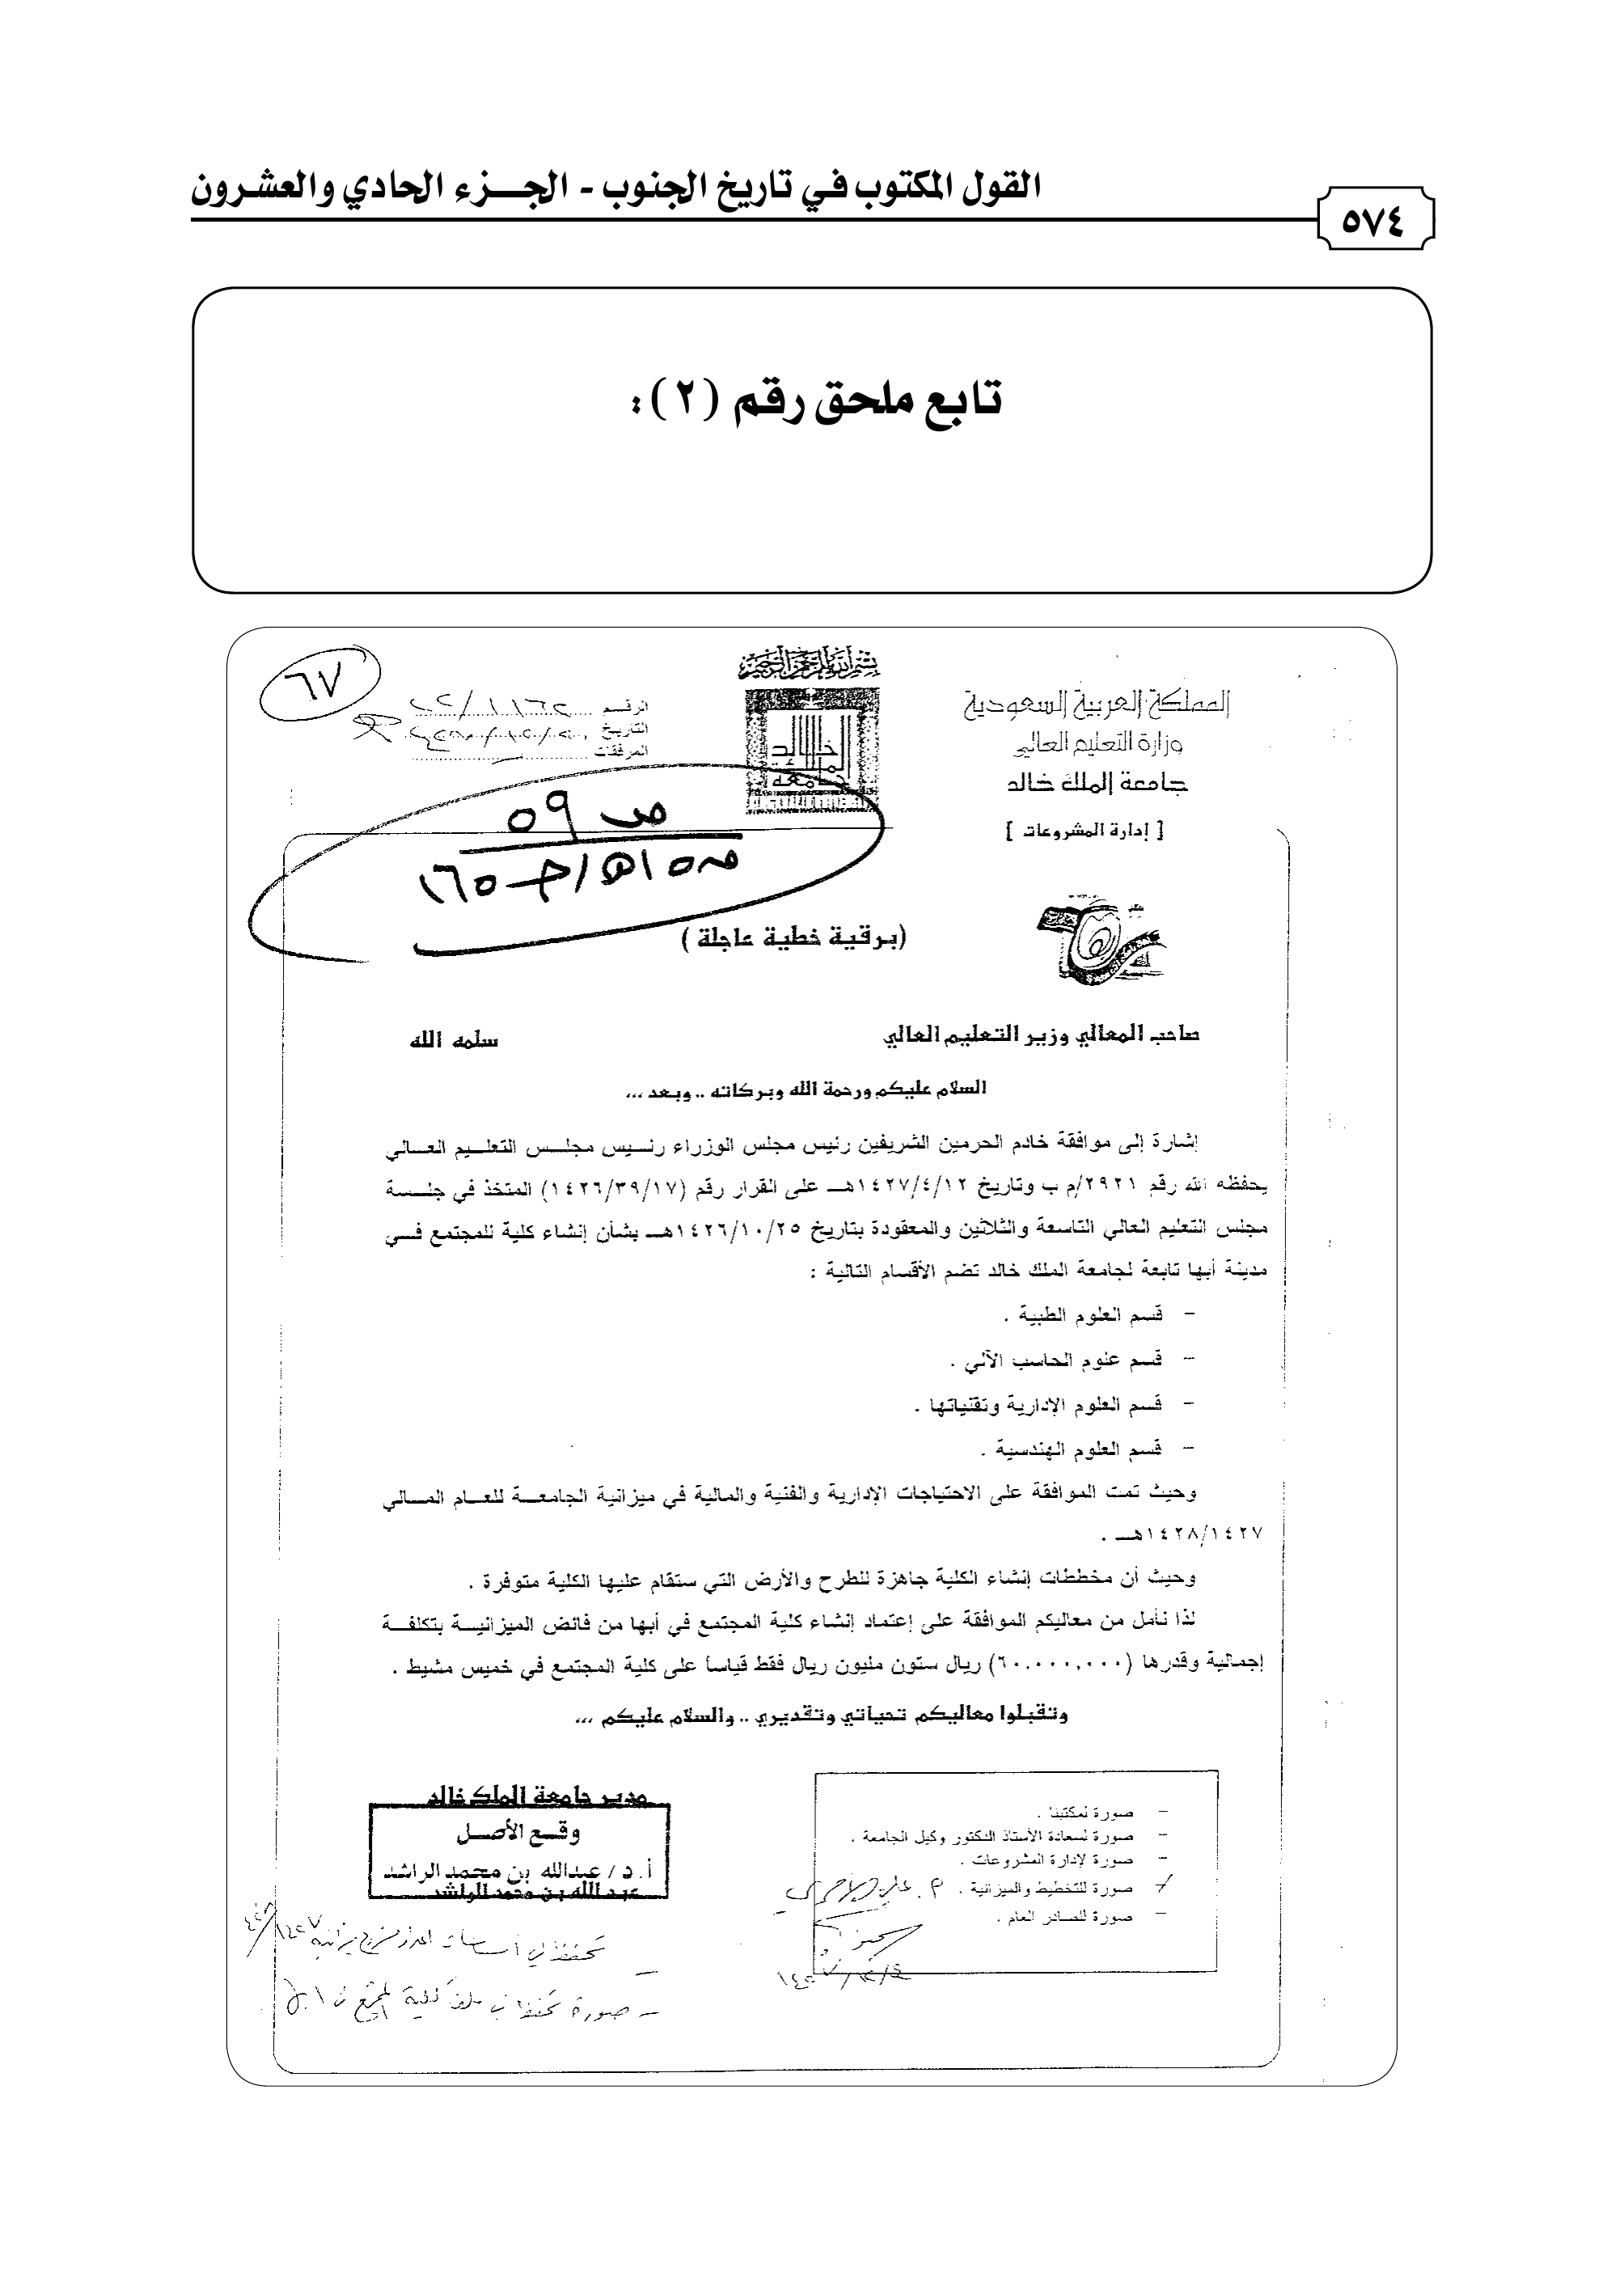 القول المكتوب في تاريخ الجنوب - الجـــزء الحادي والعشرون
٥٧٤
تابع ملحق رقم (٢):
بسم الله الرحمن الرحيم
المملكة العربية السعودية
وزارة التعليم العالي
جامعة الملك خالد
[ إدارة المشروعات ]
جامعة الملك خالد
الرقـم
التاريخ
المرفقات
٦٧
ص ٥٩
(برقية خطية عاجلة )
صاحب المعالي وزير التعليم العالي سلمه الله
السلام عليكم ورحمة الله وبركاته .. وبعد ،،،
إشارة إلى موافقة خادم الحرمين الشريفين رئيس مجلس الوزراء رئـيس مجلـس التعلـيم العـالي
يحفظه الله رقم ٢٩٢١/م ب وتاريخ ١٤٢٧/٤/١٢هـ على القرار رقم (١٤٢٦/٣٩/١٧) المتخذ في جلـسة
مجلس التعليم العالي التاسعة والثلاثين والمعقودة بتاريخ ١٤٢٦/١٠/٢٥هـ بشأن إنشاء كلية للمجتمع فـي
مدينة أبها تابعة لجامعة الملك خالد تضم الأقسام التالية :
- قسم العلوم الطبية .
- قسم علوم الحاسب الآلي .
- قسم العلوم الإدارية وتقنياتها .
- قسم العلوم الهندسية .
وحيث تمت الموافقة على الاحتياجات الإدارية والفنية والمالية في ميزانية الجامعـة للعـام المـالي
١٤٢٨/١٤٢٧هـ .
وحيث أن مخططات إنشاء الكلية جاهزة للطرح والأرض التي ستقام عليها الكلية متوفرة .
لذا نأمل من معاليكم الموافقة على إعتماد إنشاء كلية المجتمع في أبها من فائض الميزانيـة بتكلفـة
إجمالية وقدرها (٦٠.٠٠٠,٠٠٠) ريال ستون مليون ريال فقط قياساً على كلية المجتمع في خميس مشيط .
وتقبلوا معاليكم تحياتي وتقديري .. والسلام عليكم ،،،
مدير جامعة الملك خالد
وقـع الأصـل
أ.د / عبدالله بن محمد الراشد
عبدالله بن محمد الراشد
- صورة لمكتبنا .
- صورة لسعادة الأستاذ الدكتور وكيل الجامعة .
- صورة لإدارة المشروعات .
- صورة للتخطيط والميزانية .
- صورة للصادر العام .